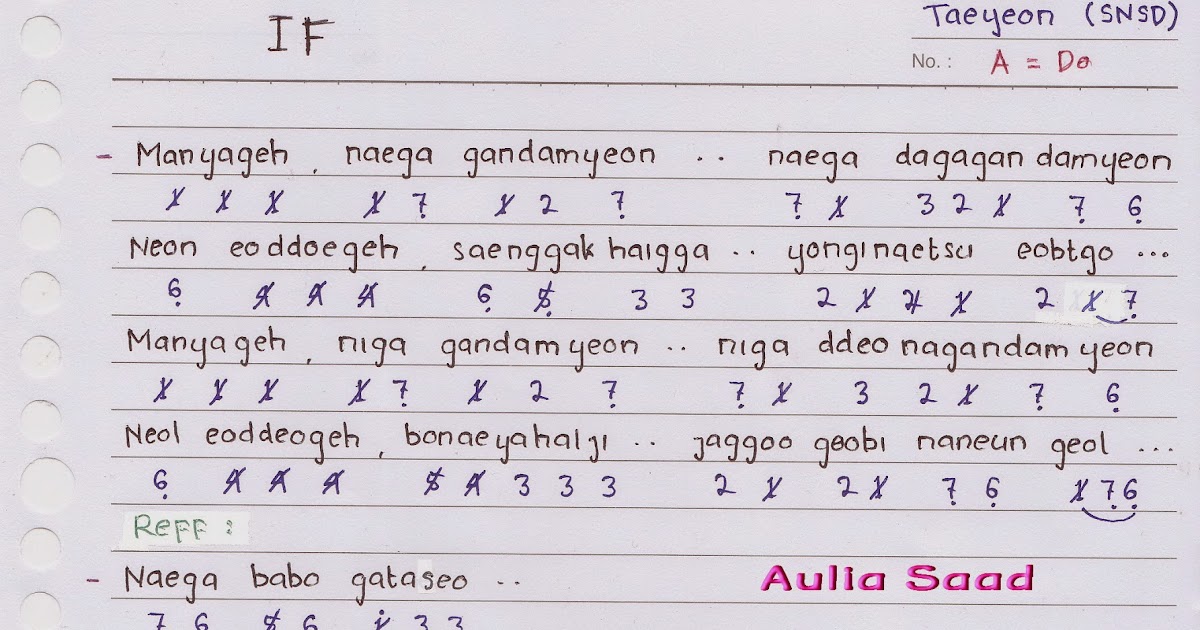 IF
Taeyeon (SNSD)
No. : A = Do
- Manyageh , naega gandamyeon .. naega dagagandamyeon
1 1 1 1 7 1 2 7 7 1 3 2 1 7 6
Neon eoddoegeh , saenggak halgga .. yonginaetsu eobtgo ...
6 4 4 4 6 5 3 3 2 1 2 1 2 1 7
Manyageh , niga gandamyeon .. niga ddeonagandamyeon
1 1 1 1 7 1 2 7 7 1 3 2 1 7 6
Neol eoddeogeh , bonaeyahalji .. jaggoo geobi naneun geol ...
6 4 4 4 5 4 3 3 3 2 1 2 1 7 6 1 7 6
Reff :
- Naega babo gataseo ..
Aulia Saad
7 6 5 6 1 3 3